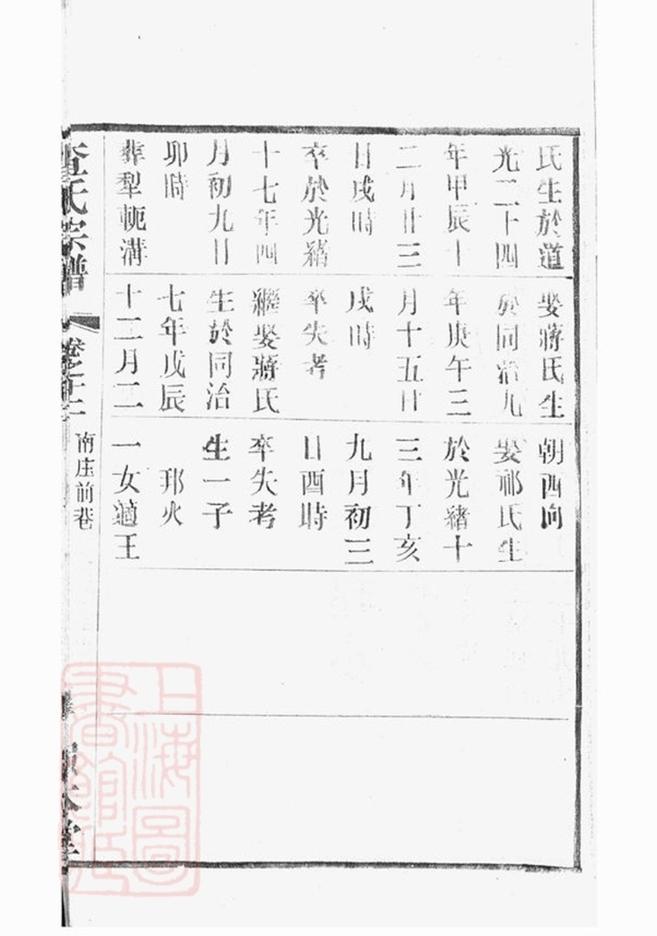 氏生於道
光二十四
年甲辰十
二月廿三
日戌時
卒於光緒
十七年四
月初九日
卯時
葬犁軛溝
娶蔣氏生
於同治九
年庚午三
月十五日
戌時
卒失考
繼娶蔣氏
生於同治
七年戊辰
十二月二
朝酉向
娶祁氏生
於光緒十
三年丁亥
九月初三
日酉時
卒失考
生一子
邦火
一女適王
查氏宗譜
南庄前巷
上海圖
書館藏